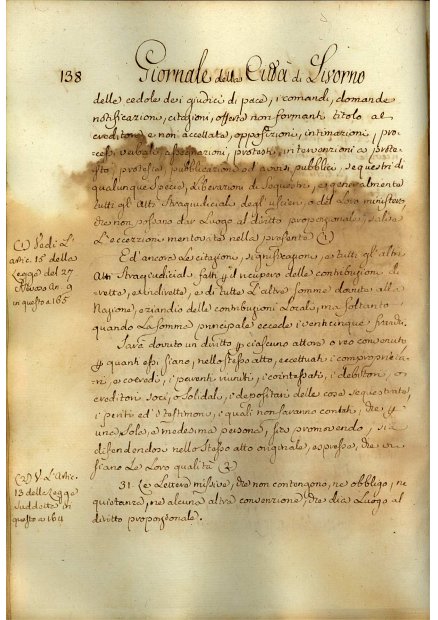 138 Giornale della Città di Livorno
delle cedole dei giudici di pace, i comandi, domande
notificazione, citazioni, offerte non formanti titolo al
creditore e non accettate, opposizioni, intimazioni, pro-
cessi verbali, assegnazioni, protesti, intervenzioni a prote-
sto, proteste, pubblicazione ed avvisi pubblici, sequestri di
qualunque specie, liberazioni di sequestri, e generalmente
tutti gl' Atti Stragiudiciali degl' uscieri, o del Loro ministero
che non possano dar Luogo al diritto proporzionale, salva
L'eccezzione mentovata nella presente (1)
(1) Vedi L'
artic. 15 della
Legge del 27
An. 9
in questo a 165
Ed ancora Le citazione, significazioni, e tutti gl' altri
Atti Stragiudiciali fatti p il recupero delle contribuzioni di-
rette, e indirette, e di tutte L'altre somme dovute alla
Nazione, eziandio delle contribuzioni Locali, ma soltanto
quando La somma principale eccede i venticinque franchi.
Sarà dovuto un diritto p ciascuno attore o reo convenuto
p quanti essi siano, nello stesso atto, eccettuati i comproprieta-
ri, e coeredi, i parenti riuniti, i cointeressati, i debitori, o
creditori soci, o solidali, i depositari delle cose sequestrate,
i periti ed i testimoni, i quali non faranno contati, che p
una sola, e medesima persona, sia promovendo, sia
difendendosi nello stesso atto originale, espresse, che vi
siano Le Loro qualità (2)
(2) V. L'Artic.
13 della Legge
suddetta in
questo a 164
31. Le Lettere missive, che non contengono, ne obbligo, ne
quietanze, ne alcuna altra convenzione, che dia Luogo al
diritto proporzionale.